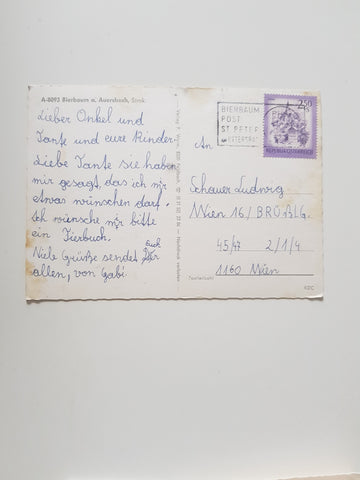 A-8093 Bierbaum a. Auersbach, Stmk.
Lieber Onkel und
Tante und eure Kinder
Liebe Tante sie haben
mir gesagt, das ich mir
etwas wünschen darf.
Ich wünsche mir bitte
ein Tierbuch.
Viele Grüße sendet Euch
allen, von Gabi.
BIERBAUM
POST
ST PETER
2.50
REPUBLIK ÖSTERREICH
An
Schauer Ludwig
Wien 16/BRÜßLG.
45/47 2/1/4
1160 Wien